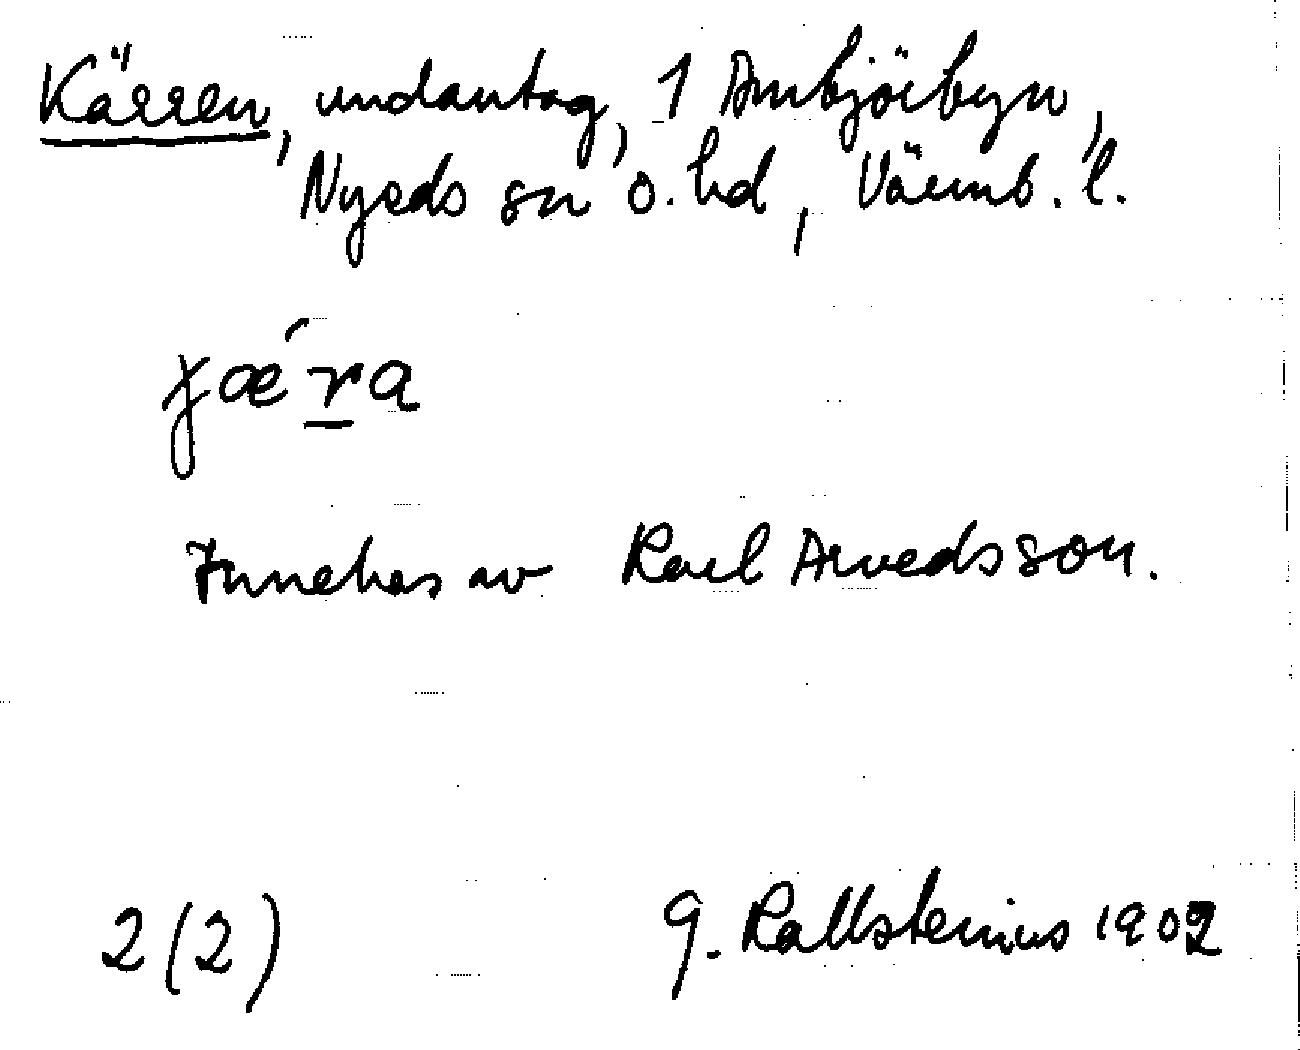 Kärren, undantag, 1 Ambjörbyn,
Nyeds sn o. hd, Värmb. l.
ʝæ´r̲a
Innehas av Karl Arvedsson.
2(2) G. Kallstenius 1902